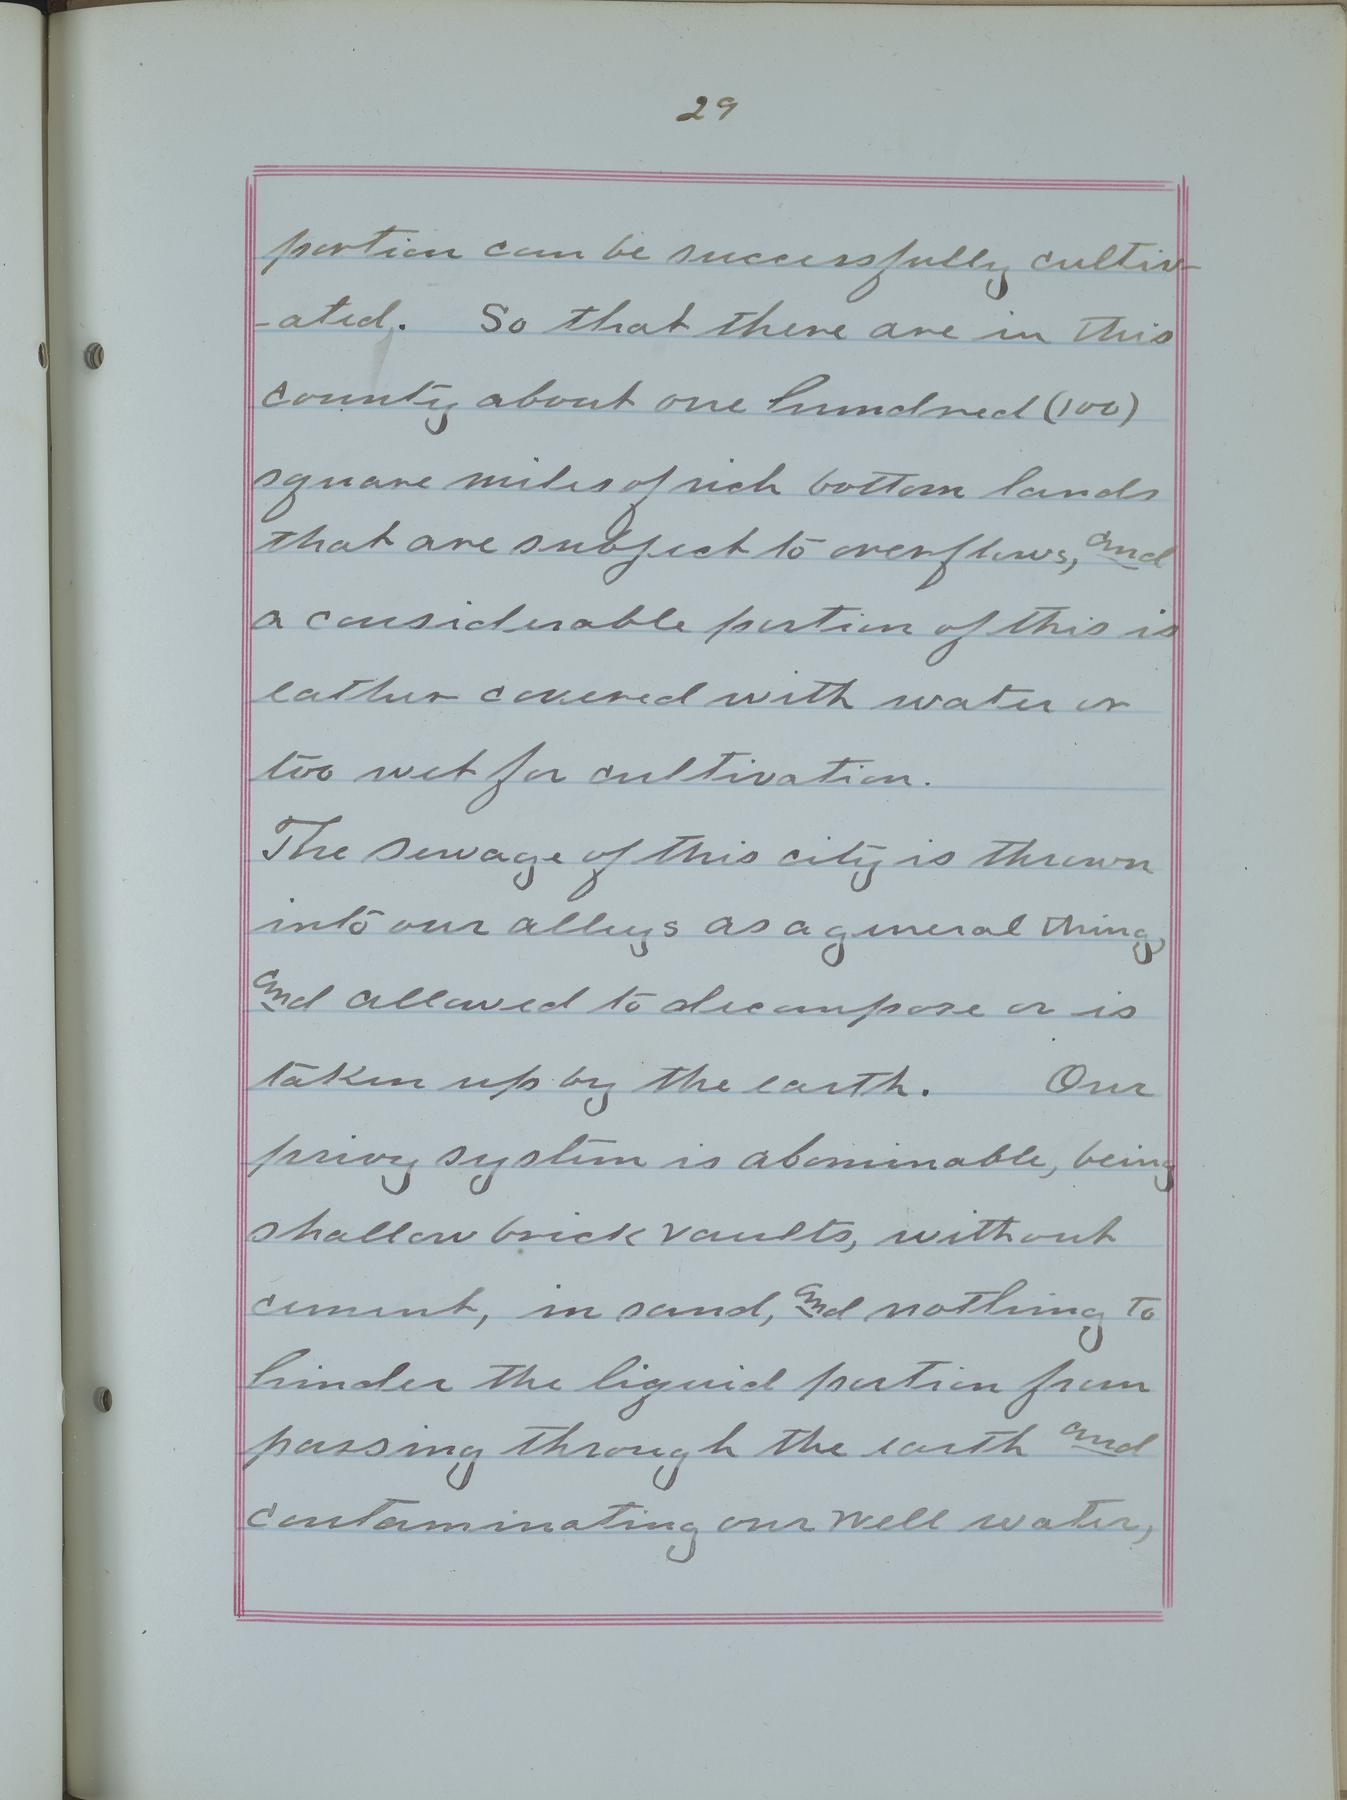 29
portion can be successfully cultiv-
-ated. So that there are in this
county about one hundred (100)
square miles of rich bottom lands
that are subject to overflows, and
a considerable portion of this is
eather covered with water or
too wet for cultivation.
The sewage of this city is thrown
into our alleys as a general thing,
and allowed to decompose or is
taken up by the earth. Our
privy system is abominable, being
shallow brick vaults, without
cement, in sand, and nothing to
hinder the liquid portion from
passing through the earth and
contaminating our well water,